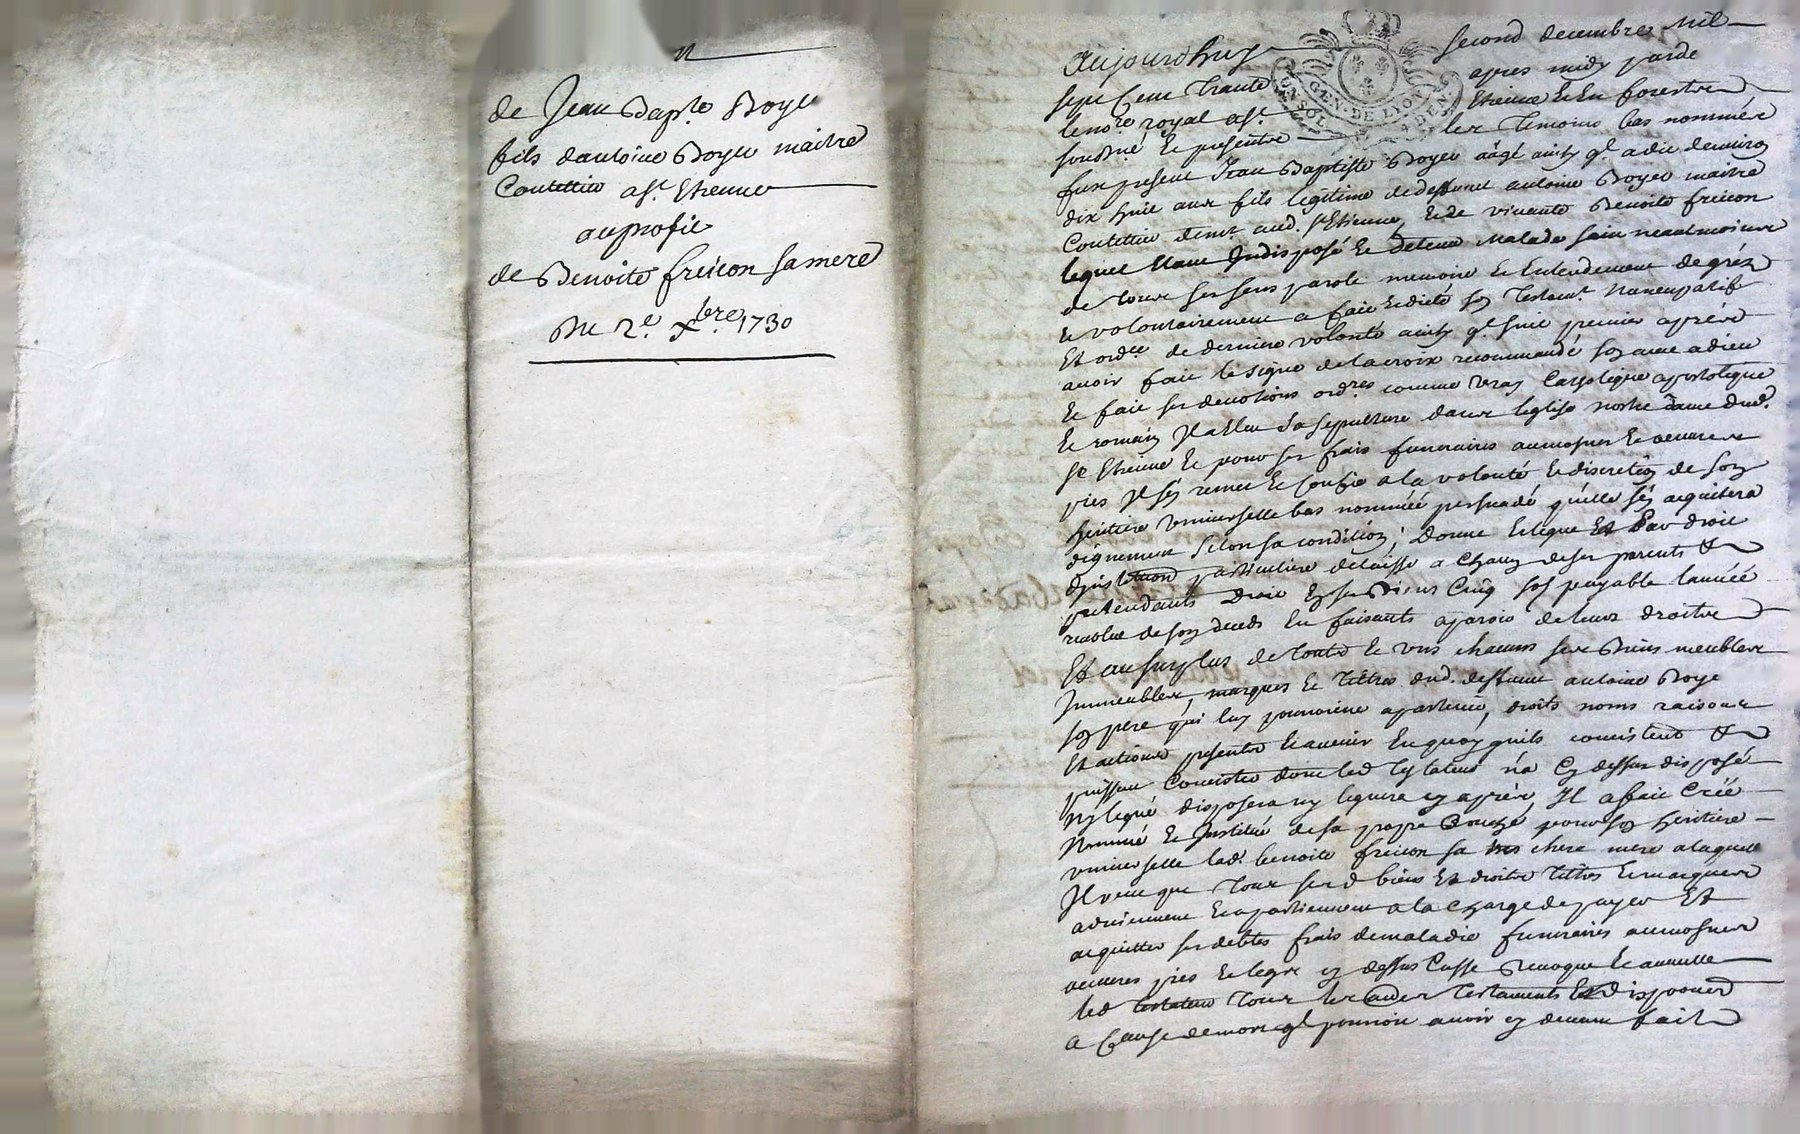 de Jean Bap.te Boyer
fils dantoine Boyer maitre
Coutellier a St Etienne
au profit
de Benoite freicon sa mere
Du 2e Xbre 1730
Aujourdhuy second decembre mil
sept Cent Trante apres midy parde
le no.re royal a St. Etienne En forestz
soub.né Et presents les Temoins bas nommés
fut present Jean Baptiste Boyer aâgé ainsy ql a dit denviron
dix huit ans fils legitime de deffunct antoine Boyer maitre
Coutellier demt. aud. St Etienne, Et de vivante Benoite freicon
lequel Etant Indisposé Et detenu Malade sain neantmoins
de tous ses sens parole memoire Et Entendement de gréz
Et volontairement a fait Et dicté son Testamt. Nuncupatif
Et ordce de derniere volonté ainsy ql suit premier aprés
avoir fait le signe de la croix recommandé son ame a dieu
Et fait ses devotions ord.res comme vray Catholique apostolique
Et romain Il a Elu sa sepulture dans leglise notre dame dud.
St Etienne Et pour ses frais funeraires aumosnes Et oeuvres
pies Il s'en remet Et confie a la volonté Et discretion de son
heritiere universelle bas nommée persuadé qu'elle s'en aquitera
dignement selon sa condition; Donne Et legue Et Par droit
d'institution particuliere delaisse a Chacun de ses parents &
pretendants Droit En ses Biens Cinq sols payable lannée
revolue de son deceds En faisants aparoir de leurs droits
Et au surplus de touts Et uns chacuns ses Biens meubles
Immeubles, marques Et Tittres dud. deffunct antoine Boye
son pere qui luy pourroient apartenir, droits noms raisons
Et actions presents Et avenir En quoy quils consistent &
puissent Consister dont led Testateur n'a Cy dessus disposé
Ny legué disposera ny leguera cy aprés, Il a fait Créé
Nommé Et Institué de sa propre Bouche pour son heritiere
universelle lad. benoite freicon sa tres chere mere a laquelle
Il veut que Tous sesd biens Et droits Tittres Et marques
adviennent Et apartiennent a la Charge de payer Et
acquitter ses debtes frais de maladie funeraires aumosnes
oeuvres pies Et legs cy dessus Casse Revoque Et annulle
led Testateur tous les autres Testaments Et dispoones
a Cause de mort ql pourroit avoir cy devant faits